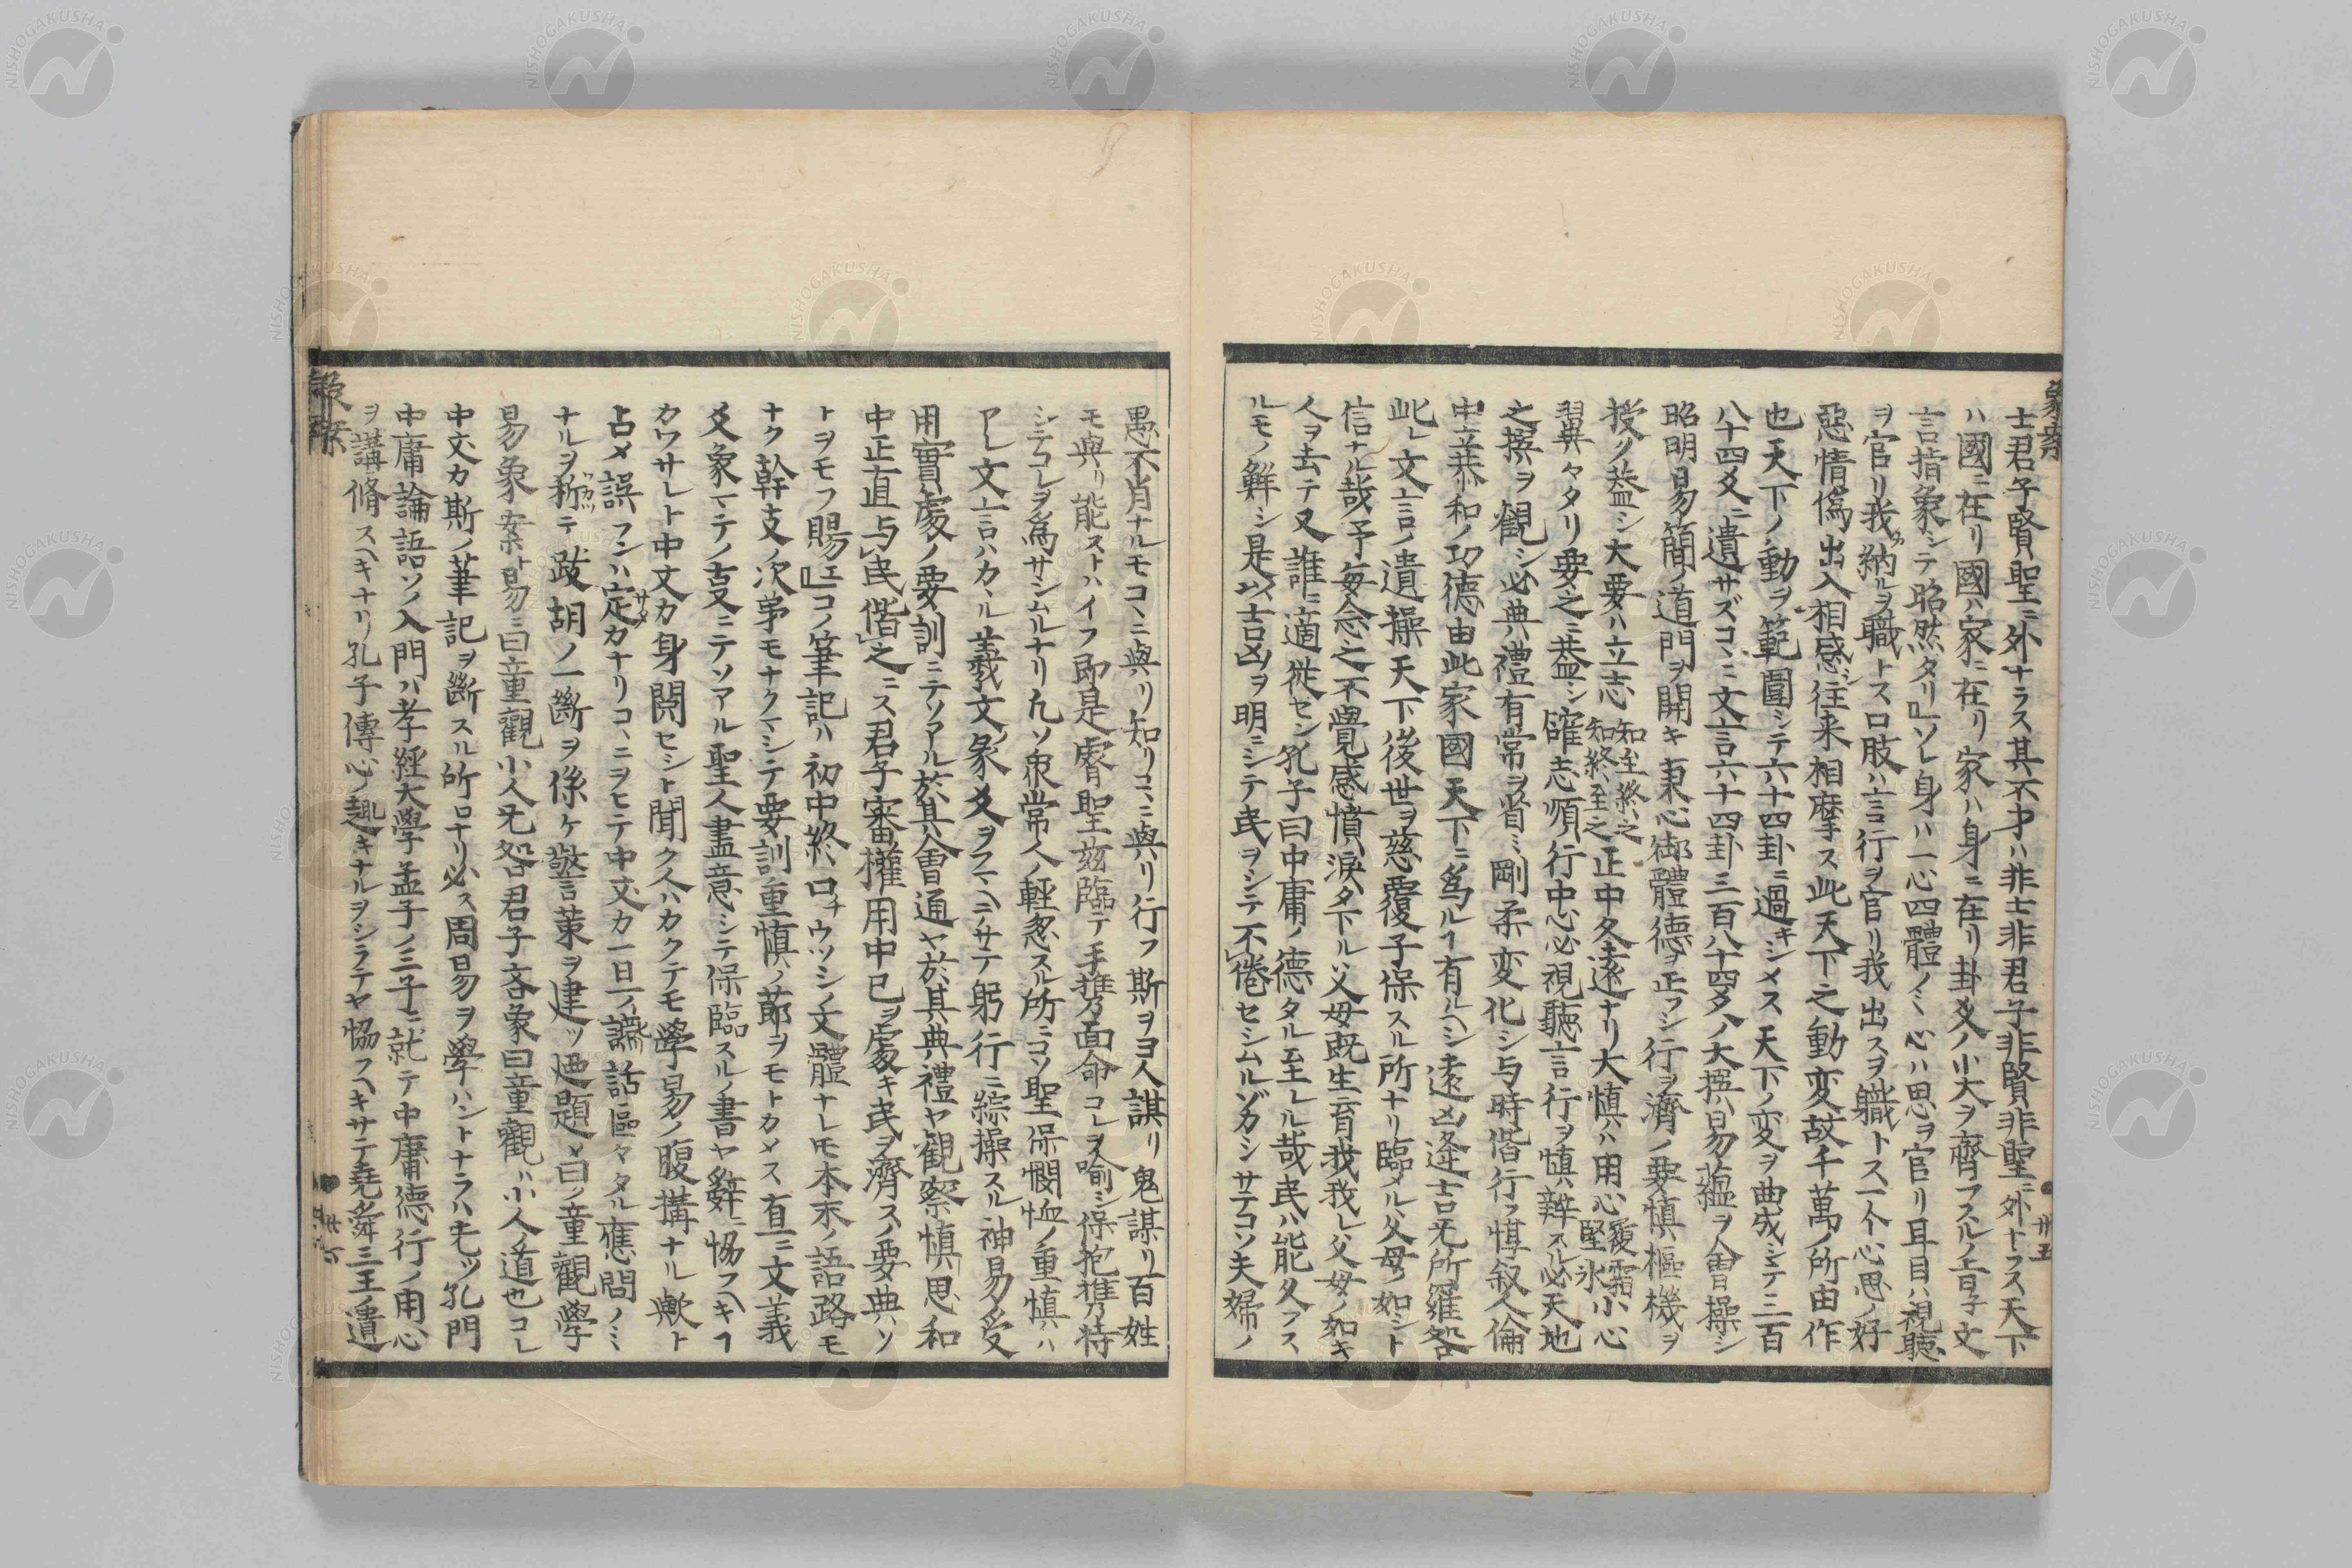 士君子賢聖ニ外ナラス其不才ハ非士非君子非賢非聖ニ外ナラス天下
ハ國ニ在リ國ハ家ニ在リ家ハ身ニ在リ卦爻ノ小大ヲ齊フスルノ旨子文
言指象シテ昭然タリ』ソレ身ハ一心四體ノミ心ハ思ヲ官リ耳目ハ視聽
ヲ官リ我納ルヲ職トス口肢ハ言行ヲ官リ我出スヲ職トス一个心思ノ好
惡情僞出入相感シ往来相摩ス此天下之動変故千萬ノ所由作
也天下ノ動ヲ範圍シテ六十四卦ニ過キシメス天下ノ変ヲ曲成シテ三百
八十四爻ニ遺サズコヽニ文言六十四卦三百八十四爻ノ大撰易蘊ヲ會操シ
昭明易簡ノ道門ヲ開キ秉心御體德ヲ正フシ行ヲ濟ノ要慎樞機ヲ
授ク蓋シ大要ハ立志知至終之知終至之正中久遠ナリ大慎ハ用心履霜堅氷小心
翼々タリ要之ニ蓋シ確志順行中心必視聽言行ヲ慎辨スル必天地
之撰ヲ觀シ必典禮有常ヲ省ミ剛柔変化シ与時偕行フ惇叙人倫
中立恭和ノ功德由此家國天下ニ爲ルヿ有ルヘシ遠凶逢吉无所羅咎
此レ文言ノ遺操天下後世ヲ慈覆子保スル所ナリ臨メル父母ノ如シト
信ナル哉予毎念之不覺感憤淚タ下ル父母既生育我我レ父母ノ如キ
人ヲ去テ又誰ニ適從セン孔子曰中庸ノ德タル至レル哉民ハ能久フス
ルモノ鮮シ是以吉凶ヲ明ニシテ民ヲシテ不倦セシムルゾカシサテコソ夫婦ノ
象案
廿五
愚不肖ナルモコヽニ與リ知リコヽニ與リ行フ斯ヲヨ人謀リ鬼謀リ百姓
モ與リ能ストハイフ即是睿聖茲臨テ手携面命コレヲ喻シ保抱携持
シテコレヲ爲サシムルナリ凡ソ衆常人ノ輕忽スル所ニコソ聖保憫恤ノ重慎ハ
アレ文言ハカヽル羲文彖爻ヲフマヘニサテ躬行ニ綜操スル神易受
用實處ノ要訓ニテソアル於其會通ヤ於其典禮ヤ観察慎思和
中正直与民偕之ニス君子審權用中已ヲ處キ民ヲ濟スノ要典ソ
トヲモフ賜エ』コノ筆記ハ初中終口チウツシノ文體ナレモ本末ノ語路モ
ナク幹支ノ次第モナクマシテ要訓重慎ノ節ヲモトカメス直ニ文義
爻象マテノ支ニテソアル聖人盡意シテ保臨スルノ書ヤ辭ニ協フヘキヿ
カワサレト中文カ身閲セシト聞ク人ハカクテモ學易ノ腹搆ナル歟ト
占メ誤フンハ定カナリコヽニヲヒテ中文カ一日一ノ識話區々タル應問ノミ
ナルヲ狐テ跋胡ノ一斷ヲ係ケ警言策ヲ建ツ廼題メ曰ノ童觀學
易象案ト易ニ曰童觀小人无咎君子吝象曰童觀ハ小人ノ道也コレ
中文カ斯ノ筆記ヲ斷スル所ロナリ必ス周易ヲ學ハントナラハ先ツ孔門
中庸論語ソノ入門ハ孝經大學孟子ノ三子ニ就テ中庸德行ノ用心
ヲ講脩スヘキナリ孔子傳心ノ趣キナルヲシラテヤ協フヘキサテ堯舜三王ノ遺